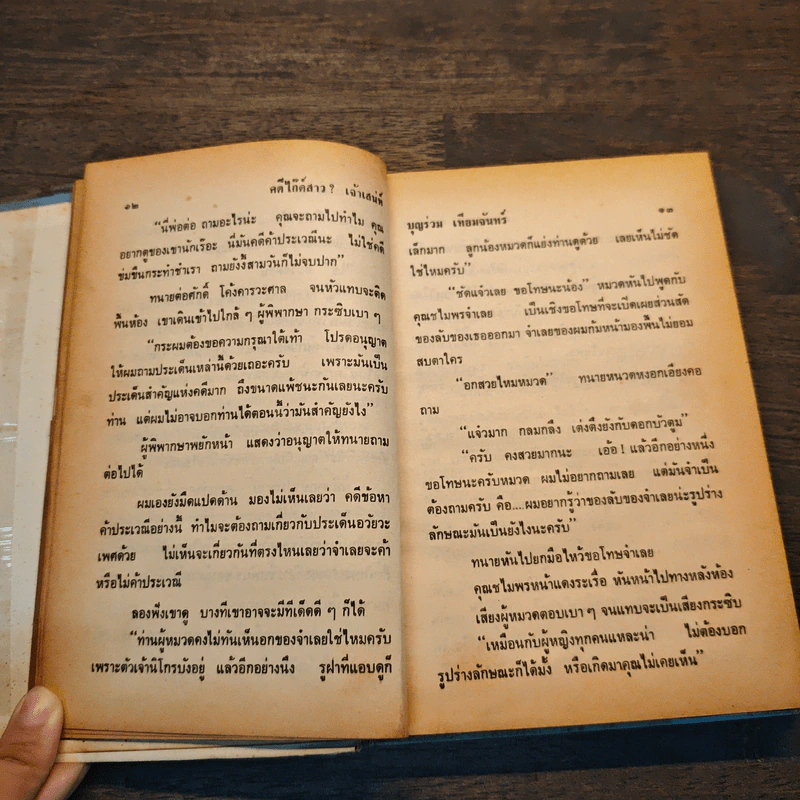 ๑๒
คดีไก๊ด์สาว ? เจ้าเสน่ห์
“นี่พ่อต่อ ถามอะไรน่ะ คุณจะถามไปทำไม คุณ
อยากดูของเขานักเร๊อะ นี่มันคดีค้าประเวณีนะ ไม่ใช่คดี
ข่มขืนกระทำชำเรา ถามยังงี้สามวันก็ไม่จบปาก”
ทนายต่อศักดิ์ โค้งคารวะศาล จนหัวแทบจะติด
พื้นห้อง เขาเดินเข้าไปใกล้ ๆ ผู้พิพากษา กระซิบเบา ๆ
“กระผมต้องขอความกรุณาใต้เท้า โปรดอนุญาต
ให้ผมถามประเด็นเหล่านี้ด้วยเถอะครับ เพราะมันเป็น
ประเด็นสำคัญแห่งคดีมาก ถึงขนาดแพ้ชนะกันเลยนะครับ
ท่าน แต่ผมไม่อาจบอกท่านได้ตอนนี้ว่ามันสำคัญยังไง”
ผู้พิพากษาพยักหน้า แสดงว่าอนุญาตให้ทนายถาม
ต่อไปได้
ผมเองยังมืดแปดด้าน มองไม่เห็นเลยว่า คดีข้อหา
ค้าประเวณีอย่างนี้ ทำไมจะต้องถามเกี่ยวกับประเด็นอวัยวะ
เพศด้วย ไม่เห็นจะเกี่ยวกันที่ตรงไหนเลยว่าจำเลยจะค้า
หรือไม่ค้าประเวณี
ลองฟังเขาดู บางทีเขาอาจจะมีทีเด็ดดี ๆ ก็ได้
“ท่านผู้หมวดคงไม่ทันเห็นอกของจำเลยใช่ไหมครับ
เพราะตัวเจ้านิโกรบังอยู่ แล้วอีกอย่างนึง รูฝาที่แอบดูก็
บุญร่วม เทียมจันทร์
๑๓
เล็กมาก ลูกน้องหมวดก็แย่งท่านดูด้วย เลยเห็นไม่ชัด
ใช่ไหมครับ”
“ชัดแจ๋วเลย ขอโทษนะน้อง” หมวดหันไปพูดกับ
คุณชไมพรจำเลย เป็นเชิงขอโทษที่จะเปิดเผยส่วนสัด
ของลับของเธอออกมา จำเลยของผมก้มหน้ามองพื้นไม่ยอม
สบตาใคร
“อกสวยไหมหมวด” ทนายหนวดหงอกเอียงคอ
ถาม
“แจ๋วมาก กลมกลึง เต่งตึงยังกับดอกบัวตูม”
“ครับ คงสวยมากนะ เอ้อ ! แล้วอีกอย่างหนึ่ง
ขอโทษนะครับหมวด ผมไม่อยากถามเลย แต่มันจำเป็น
ต้องถามครับ คือ....ผมอยากรู้ว่าของลับของจำเลยน่ะรูปร่าง
ลักษณะมันเป็นยังไงนะครับ”
ทนายหันไปยกมือไหว้ขอโทษจำเลย
คุณชไมพรหน้าแดงระเรื่อ หันหน้าไปทางหลังห้อง
เสียงผู้หมวดตอบเบา ๆ จนแทบจะเป็นเสียงกระซิบ
“เหมือนกับผู้หญิงทุกคนแหละน่า ไม่ต้องบอก
รูปร่างลักษณะก็ได้มั้ง หรือเกิดมาคุณไม่เคยเห็น”